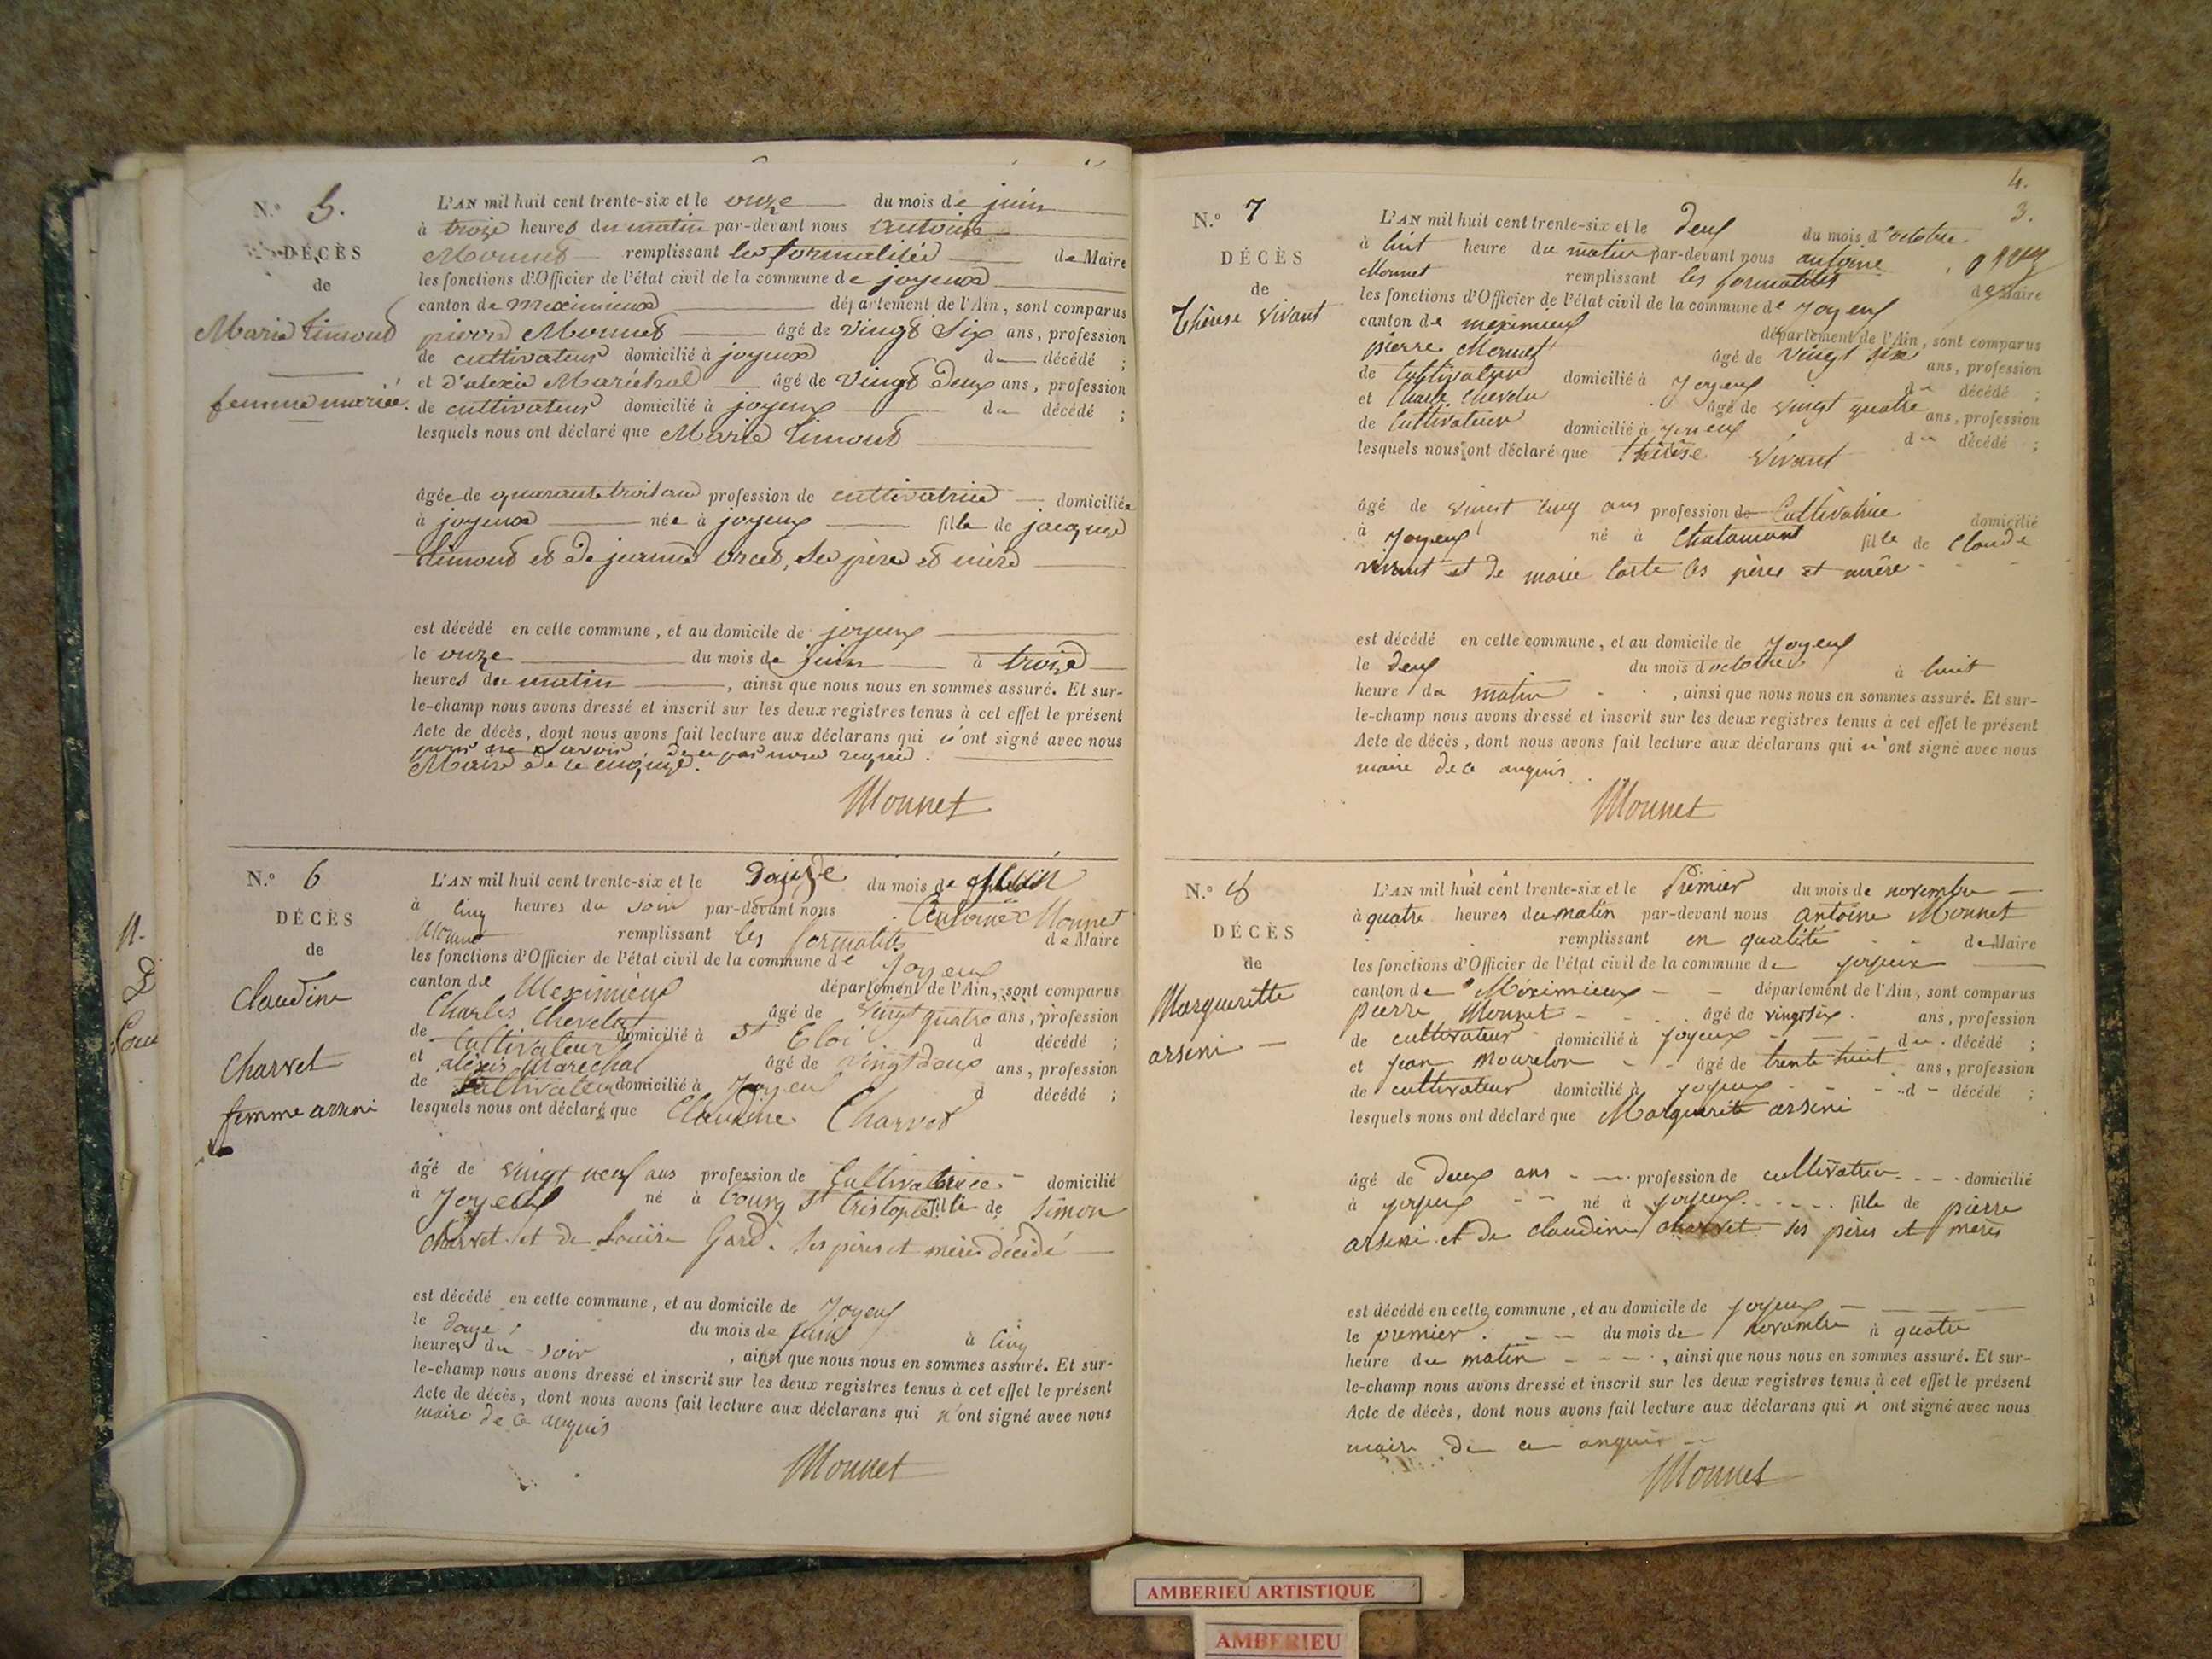 N.° 5.
DÉCÈS
de
Marie Limond
femme mariée.
L'AN mil huit cent trente-six et le onze du mois de juin
à troize heures du matin par-devant nous antoine
Monnet remplissant les formalités de Maire
les fonctions d'Officier de l'état civil de la commune de joyeux
canton de meximieux département de l'Ain, sont comparus
pierre Monnet âgé de vingt Six ans, profession
de cultivateur domicilié à joyeux d décédé ;
et d'alexis Maréchal âgé de vingt deux ans, profession
de cultivateur domicilié à joyeux du décédé ;
lesquels nous ont déclaré que Marie Limond
âgée de quarante trois ans profession de cultivatrice domiciliée
à joyeux née à joyeux fille de jacques
Limond et de jeanne orcet, ses père et mère
est décédé en cette commune, et au domicile de joyeux
le onze du mois de juin à troize
heures du matin, ainsi que nous nous en sommes assuré. Et sur-
le-champ nous avons dressé et inscrit sur les deux registres tenus à cet effet le présent
Acte de décès, dont nous avons fait lecture aux déclarans qui n'ont signé avec nous
Maire de ce enquis.
Monnet
N.° 6
DÉCÈS
de
Claudine
Charvet
femme arsini
L'AN mil huit cent trente-six et le douze du mois de Juin
à cinq heures du soir par-devant nous Antoine Monnet
Monnet remplissant les formalités de Maire
les fonctions d'Officier de l'état civil de la commune de Joyeux
canton de Meximieux département de l'Ain, sont comparus
Charles Chevelu âgé de vingt quatre ans, profession
de Cultivateur domicilié à St Eloi d décédé ;
et alexis Marechal âgé de vingt deux ans, profession
de Cultivateur domicilié à Joyeux d décédé ;
lesquels nous ont déclaré que Claudine Charvet
âgé de vingt neuf ans profession de Cultivatrice domicilié
à Joyeux né à bourg St Cristophe fille de Simon
charvet et de Louise Gard. ses pères et mère décidé
est décédé en cette commune, et au domicile de Joyeux
le douze du mois de Juin à cinq
heures du soir, ainsi que nous nous en sommes assuré. Et sur-
le-champ nous avons dressé et inscrit sur les deux registres tenus à cet effet le présent
Acte de décès, dont nous avons fait lecture aux déclarans qui n'ont signé avec nous
maire de ce anquis
Monnet
4.
3.
N.° 7
DÉCÈS
de
Thérese Vivant
L'AN mil huit cent trente-six et le deux du mois d'octobre
à huit heure du matin par-devant nous antoine
Monnet remplissant les formalités de Maire
les fonctions d'Officier de l'état civil de la commune de Joyeux
canton de meximieux département de l'Ain, sont comparus
pierre Monnet âgé de vingt six ans, profession
de Cultivateur domicilié à Joyeux du décédé ;
et Charle Chevelu âgé de vingt quatre ans, profession
de Cultivateur domicilié à Joyeux du décédé ;
lesquels nous ont déclaré que thérèse Vivant
âgé de vingt cinq ans profession de Cultivatrice domicilié
à Joyeux né à Chatamont fille de Claude
vivant et de marie Carte ses pères et mère
est décédé en cette commune, et au domicile de Joyeux
le deux du mois d'octobre à huit
heure du matin, ainsi que nous nous en sommes assuré. Et sur-
le-champ nous avons dressé et inscrit sur les deux registres tenus à cet effet le présent
Acte de décès, dont nous avons fait lecture aux déclarans qui n'ont signé avec nous
maire de ce anquis
Monnet
N.° 8
DÉCÈS
de
Marguerite
arsini
L'AN mil huit cent trente-six et le Premier du mois de novembre
à quatre heures du matin par-devant nous antoine Monnet
remplissant en qualité de Maire
les fonctions d'Officier de l'état civil de la commune de joyeux
canton de Méximieux département de l'Ain, sont comparus
pierre Monnet âgé de vingt six ans, profession
de cultivateur domicilié à joyeux du décédé ;
et jean Mourelon âgé de trente huit ans, profession
de cultivateur domicilié à joyeux d décédé ;
lesquels nous ont déclaré que Marguerite arsini
âgé de deux ans profession de cultivatrice domicilié
à joyeux né à joyeux fille de pierre
arsini et de claudine charvet ses pères et mères
est décédé en cette commune, et au domicile de joyeux
le premier du mois de novembre à quatre
heure du matin, ainsi que nous nous en sommes assuré. Et sur-
le-champ nous avons dressé et inscrit sur les deux registres tenus à cet effet le présent
Acte de décès, dont nous avons fait lecture aux déclarans qui n'ont signé avec nous
maire de ce anquis
Monnet
AMBERIEU ARTISTIQUE
AMBERIEU